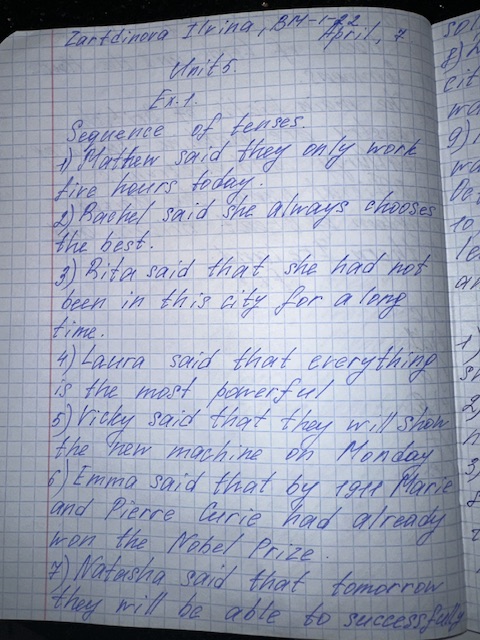 Zartdinova Ilvina, BM-1-22
April, 7
Unit 5.
Ex. 1.
Sequence of tenses.
1) Mathew said they only work
five hours today.
2) Rachel said she always chooses
the best.
3) Rita said that she had not
been in this city for a long
time.
4) Laura said that everything
is the most powerful
5) Vicky said that they will show
the new machine on Monday
6) Emma said that by 1911 Marie
and Pierre Curie had already
won the Nobel Prize.
7) Natasha said that tomorrow
they will be able to successfully
8)
9)
10
1)
2)
3)